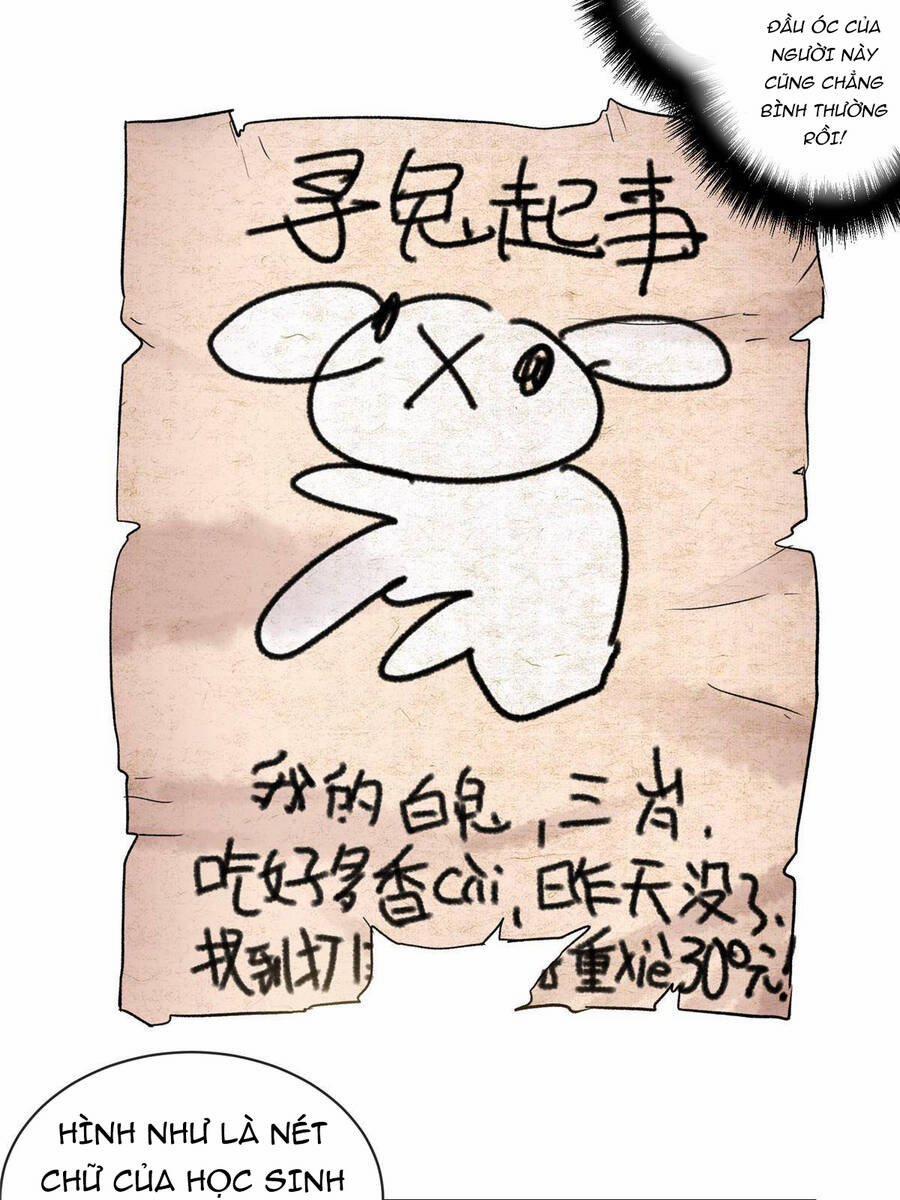 ĐẦU ÓC CỦA
NGƯỜI NÀY
CŨNG CHẲNG
BÌNH THƯỜNG
RỒI!
寻兔起事
我的白兔,三岁,
吃好多香cài,昨天没了.
找到打 重xiè300元!
HÌNH NHƯ LÀ NÉT
CHỮ CỦA HỌC SINH